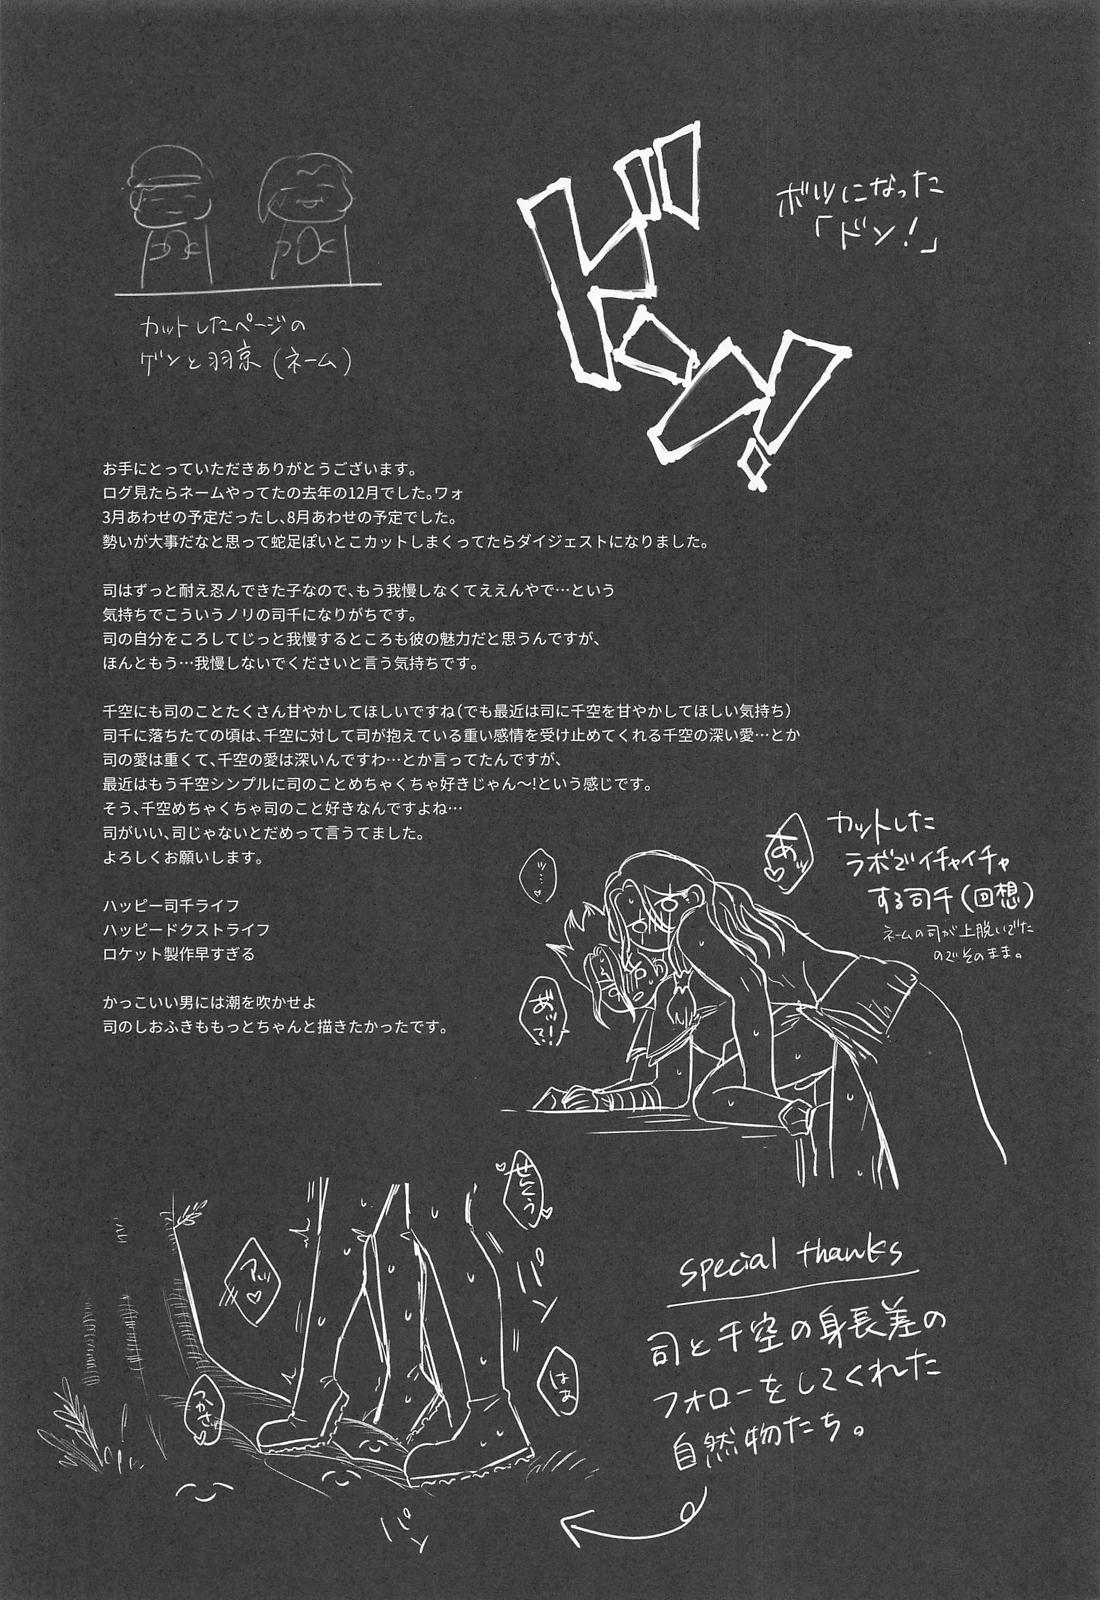 ドン!
ボツになった
「ドン!」
カットしたページの
ゲンと羽京(ネーム)
お手にとっていただきありがとうございます。
ログ見たらネームやってたの去年の12月でした。ワォ
3月あわせの予定だったし、8月あわせの予定でした。
勢いが大事だなと思って蛇足ぽいとこカットしまくってたらダイジェストになりました。
司はずっと耐え忍んできた子なので、もう我慢しなくてええんやで…という
気持ちでこういうノリの司千になりがちです。
司の自分をころしてじっと我慢するところも彼の魅力だと思うんですが、
ほんともう…我慢しないでくださいと言う気持ちです。
千空にも司のことたくさん甘やかしてほしいですね(でも最近は司に千空を甘やかしてほしい気持ち)
司千に落ちたての頃は、千空に対して司が抱えている重い感情を受け止めてくれる千空の深い愛…とか
司の愛は重くて、千空の愛は深いんですわ…とか言ってたんですが、
最近はもう千空シンプルに司のことめちゃくちゃ好きじゃん〜!という感じです。
そう、千空めちゃくちゃ司のこと好きなんですよね…
司がいい、司じゃないとだめって言うてました。
よろしくお願いします。
ハッピー司千ライフ
ハッピードクストライフ
ロケット製作早すぎる
かっこいい男には潮を吹かせよ
司のしおふきももっとちゃんと描きたかったです。
カットした
ラボでイチャイチャ
する司千(回想)
ネームの司が上脱いでた
のでそのまま。
あッ♡
ッ…♡
あ"ッ
っ!
せんくう
アッ♡
パン
はあ
つかさ♡
パン
special thanks
司と千空の身長差の
フォローをしてくれた
自然物たち。